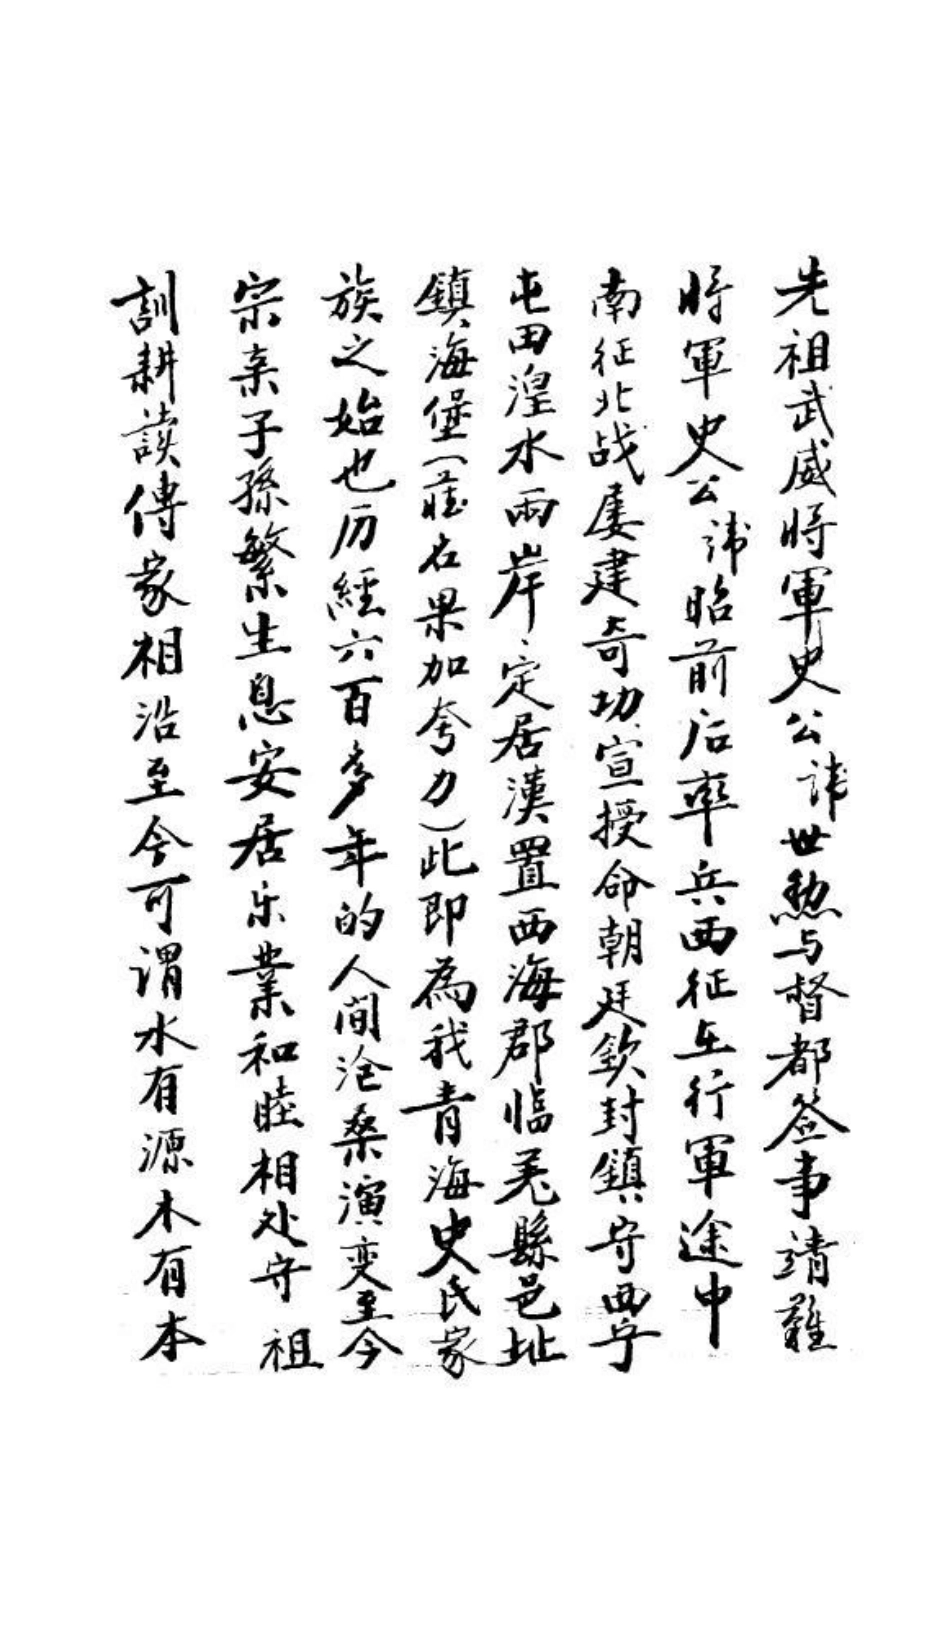 先祖武威将軍史公諱世勲与督都签事靖難
将軍史公諱昭前后率兵西征在行軍途中
南征北战屡建奇功宣授命朝廷欽封鎮守西宁
屯田湟水兩岸定居漢置西海郡臨羌縣邑址
鎮海堡(藏名果加夸力)此即為我青海史氏家
族之始也历經六百多年的人间沧桑演变至今
宗亲子孫繁生息安居乐業和睦相处守祖
訓耕讀傳家相沿至今可谓水有源木有本